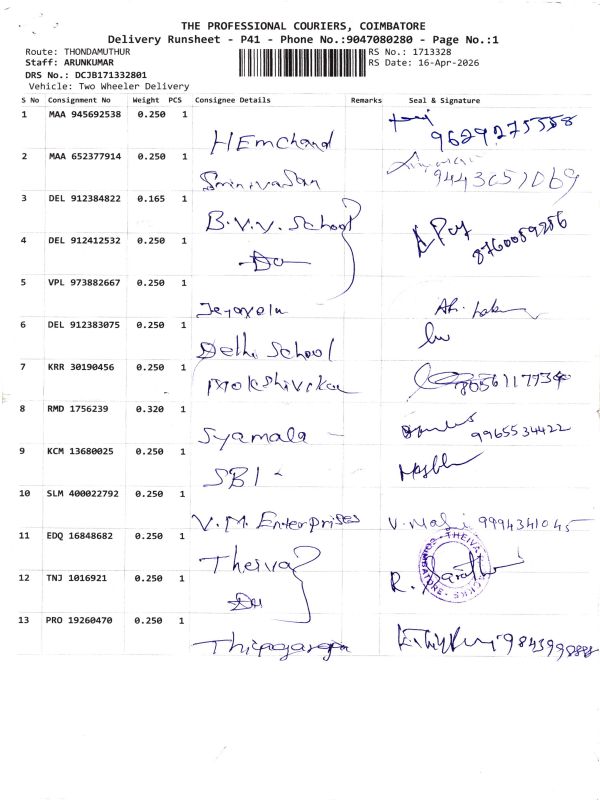 THE PROFESSIONAL COURIERS, COIMBATORE
Delivery Runsheet - P41 - Phone No.:9047080280 - Page No.:1
Route: THONDAMUTHUR
RS No.: 1713328
Staff: ARUNKUMAR
RS Date: 16-Apr-2026
DRS No.: DCJB171332801
Vehicle: Two Wheeler Delivery
S No Consignment No Weight PCS Consignee Details Remarks Seal & Signature
1 MAA 945692538 0.250 1 HEmchand 9629275558
2 MAA 652377914 0.250 1 Srinivasan
3 DEL 912384822 0.165 1 B.V.V. School
4 DEL 912412532 0.250 1 Do 8760059256
5 VPL 973882667 0.250 1 Jeyavelu
6 DEL 912383075 0.250 1 Delhi School
7 KRR 30190456 0.250 1
8 RMD 1756239 0.320 1 Syamala 9965534422
9 KCM 13680025 0.250 1 SBI
10 SLM 400022792 0.250 1 V.M. Enterprises V. Mani 9994341045
11 EDQ 16848682 0.250 1 Theiva
12 TNJ 1016921 0.250 1 Do R. Sarathi
13 PRO 19260470 0.250 1 Thiyagarajan